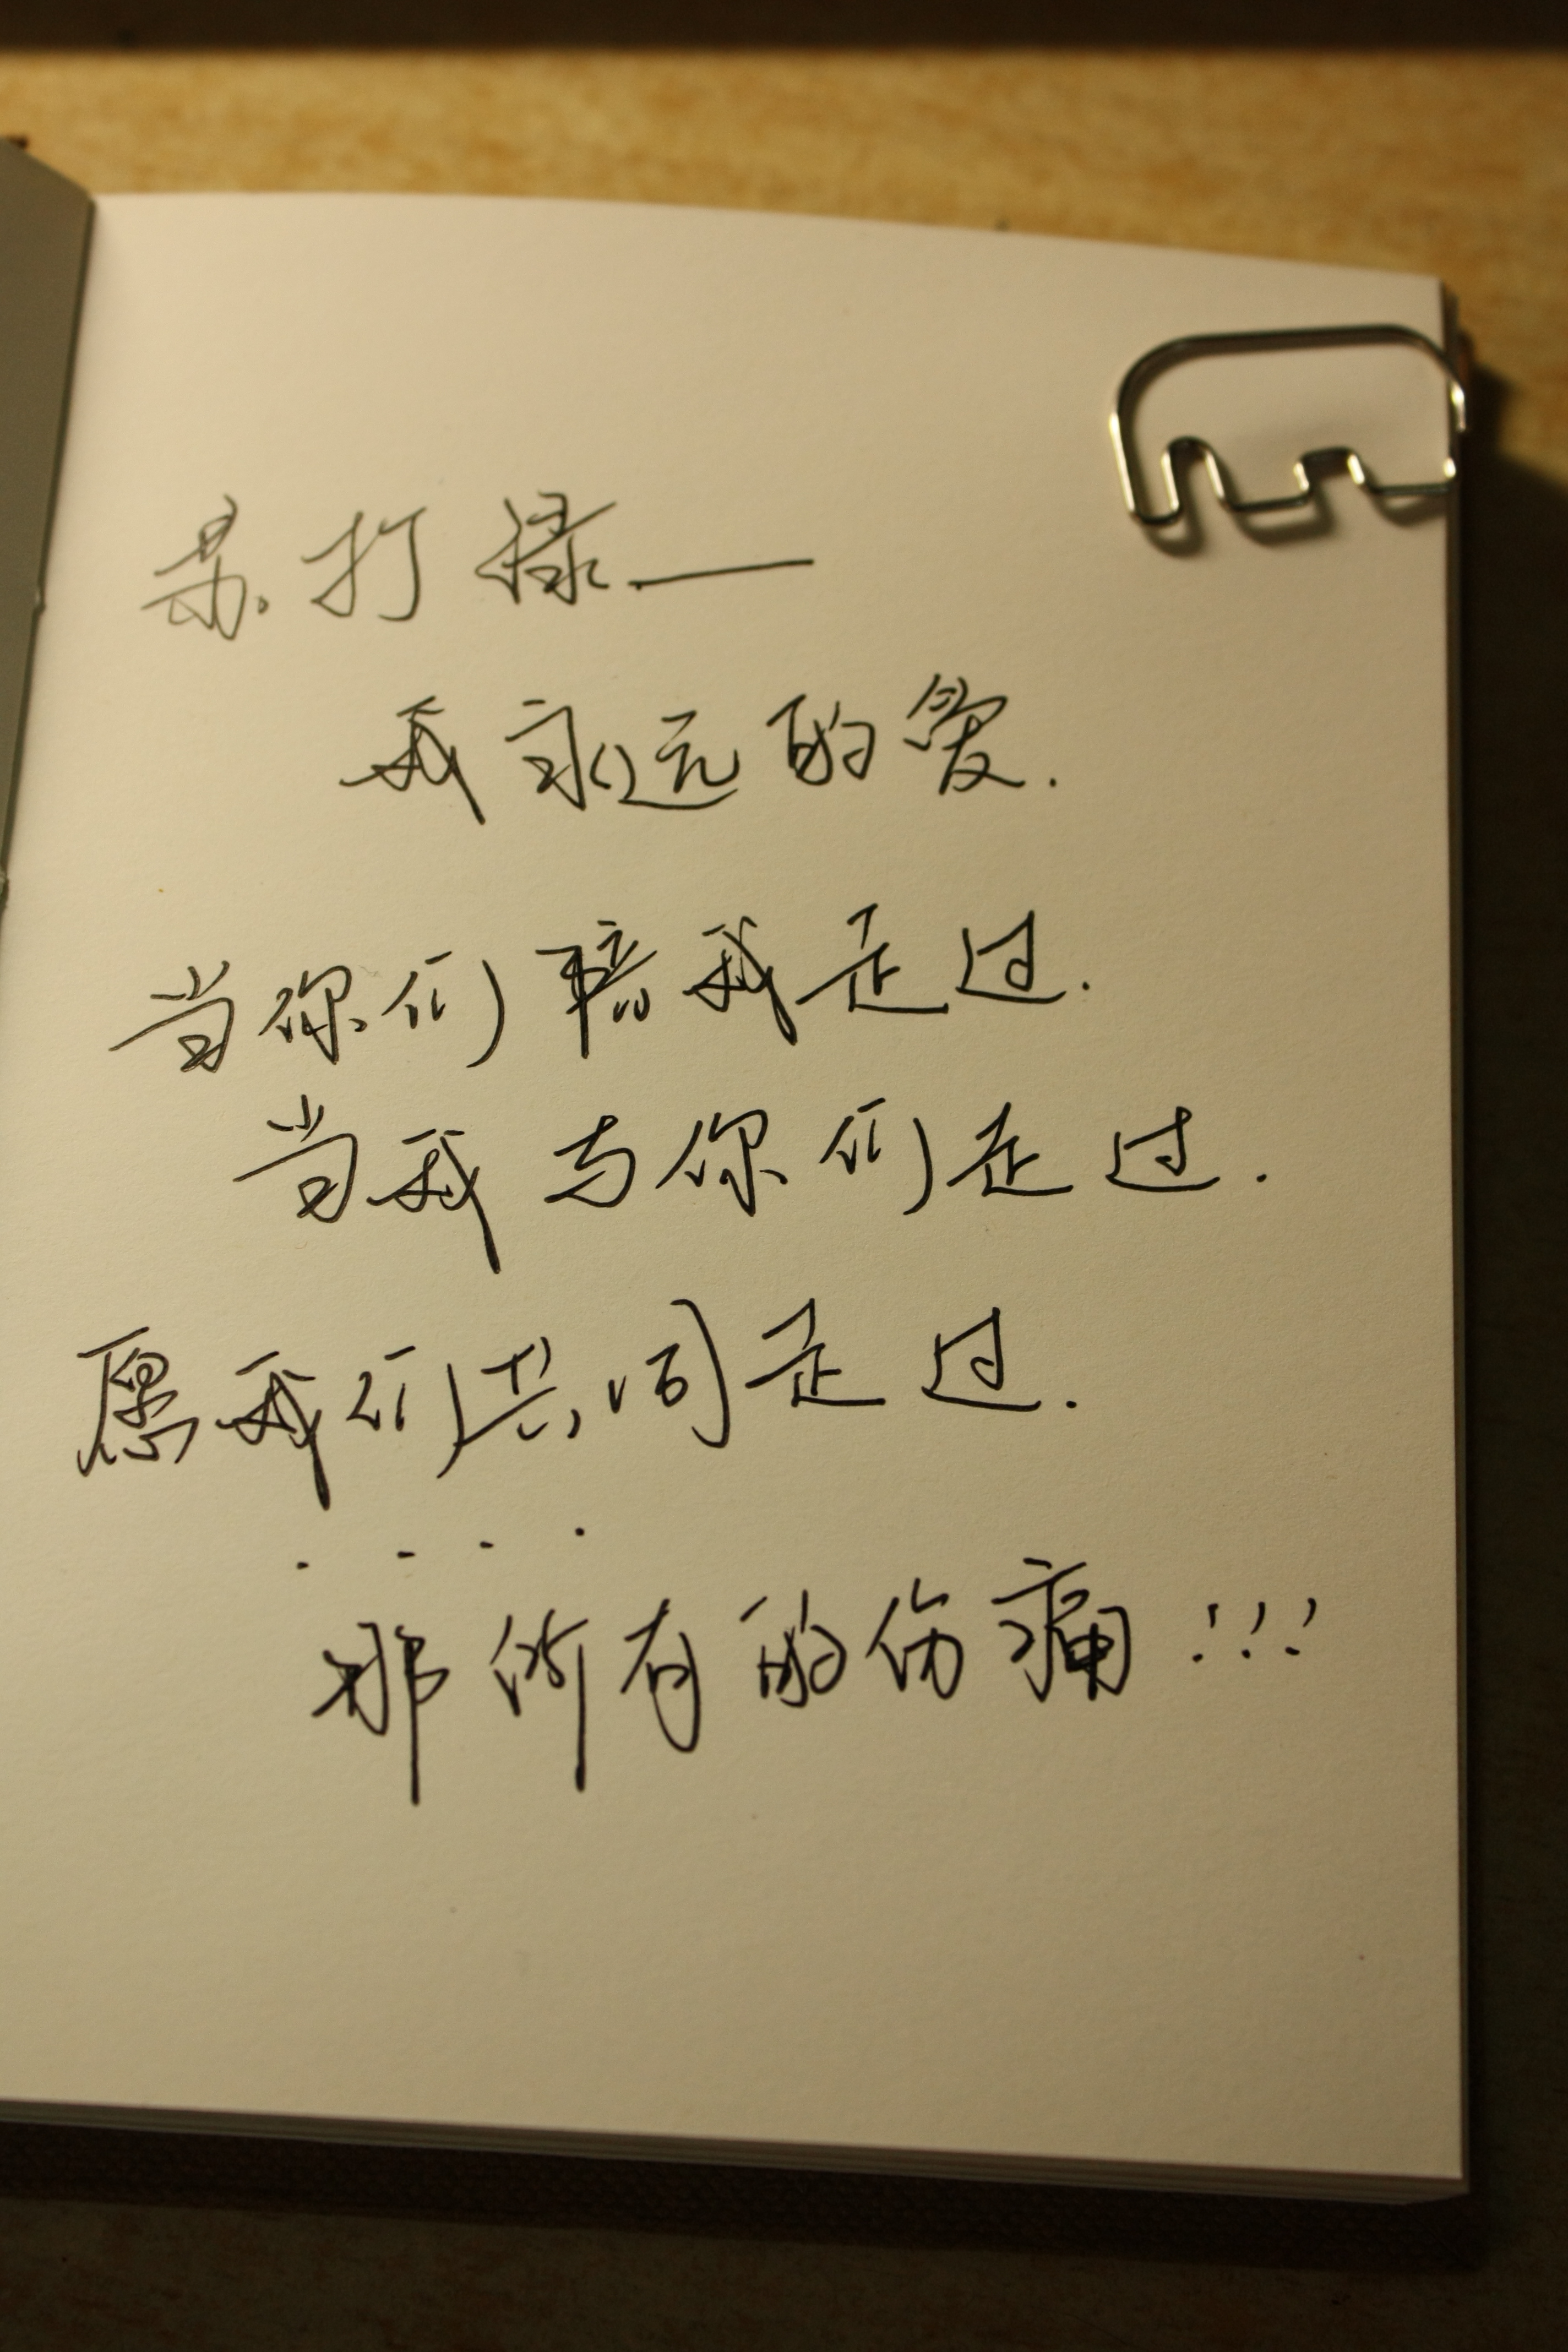 苏打禄——
我永远的爱.
当你们陪我走过.
当我与你们走过.
愿我们共同走过.
....
那所有的伤痛!!!